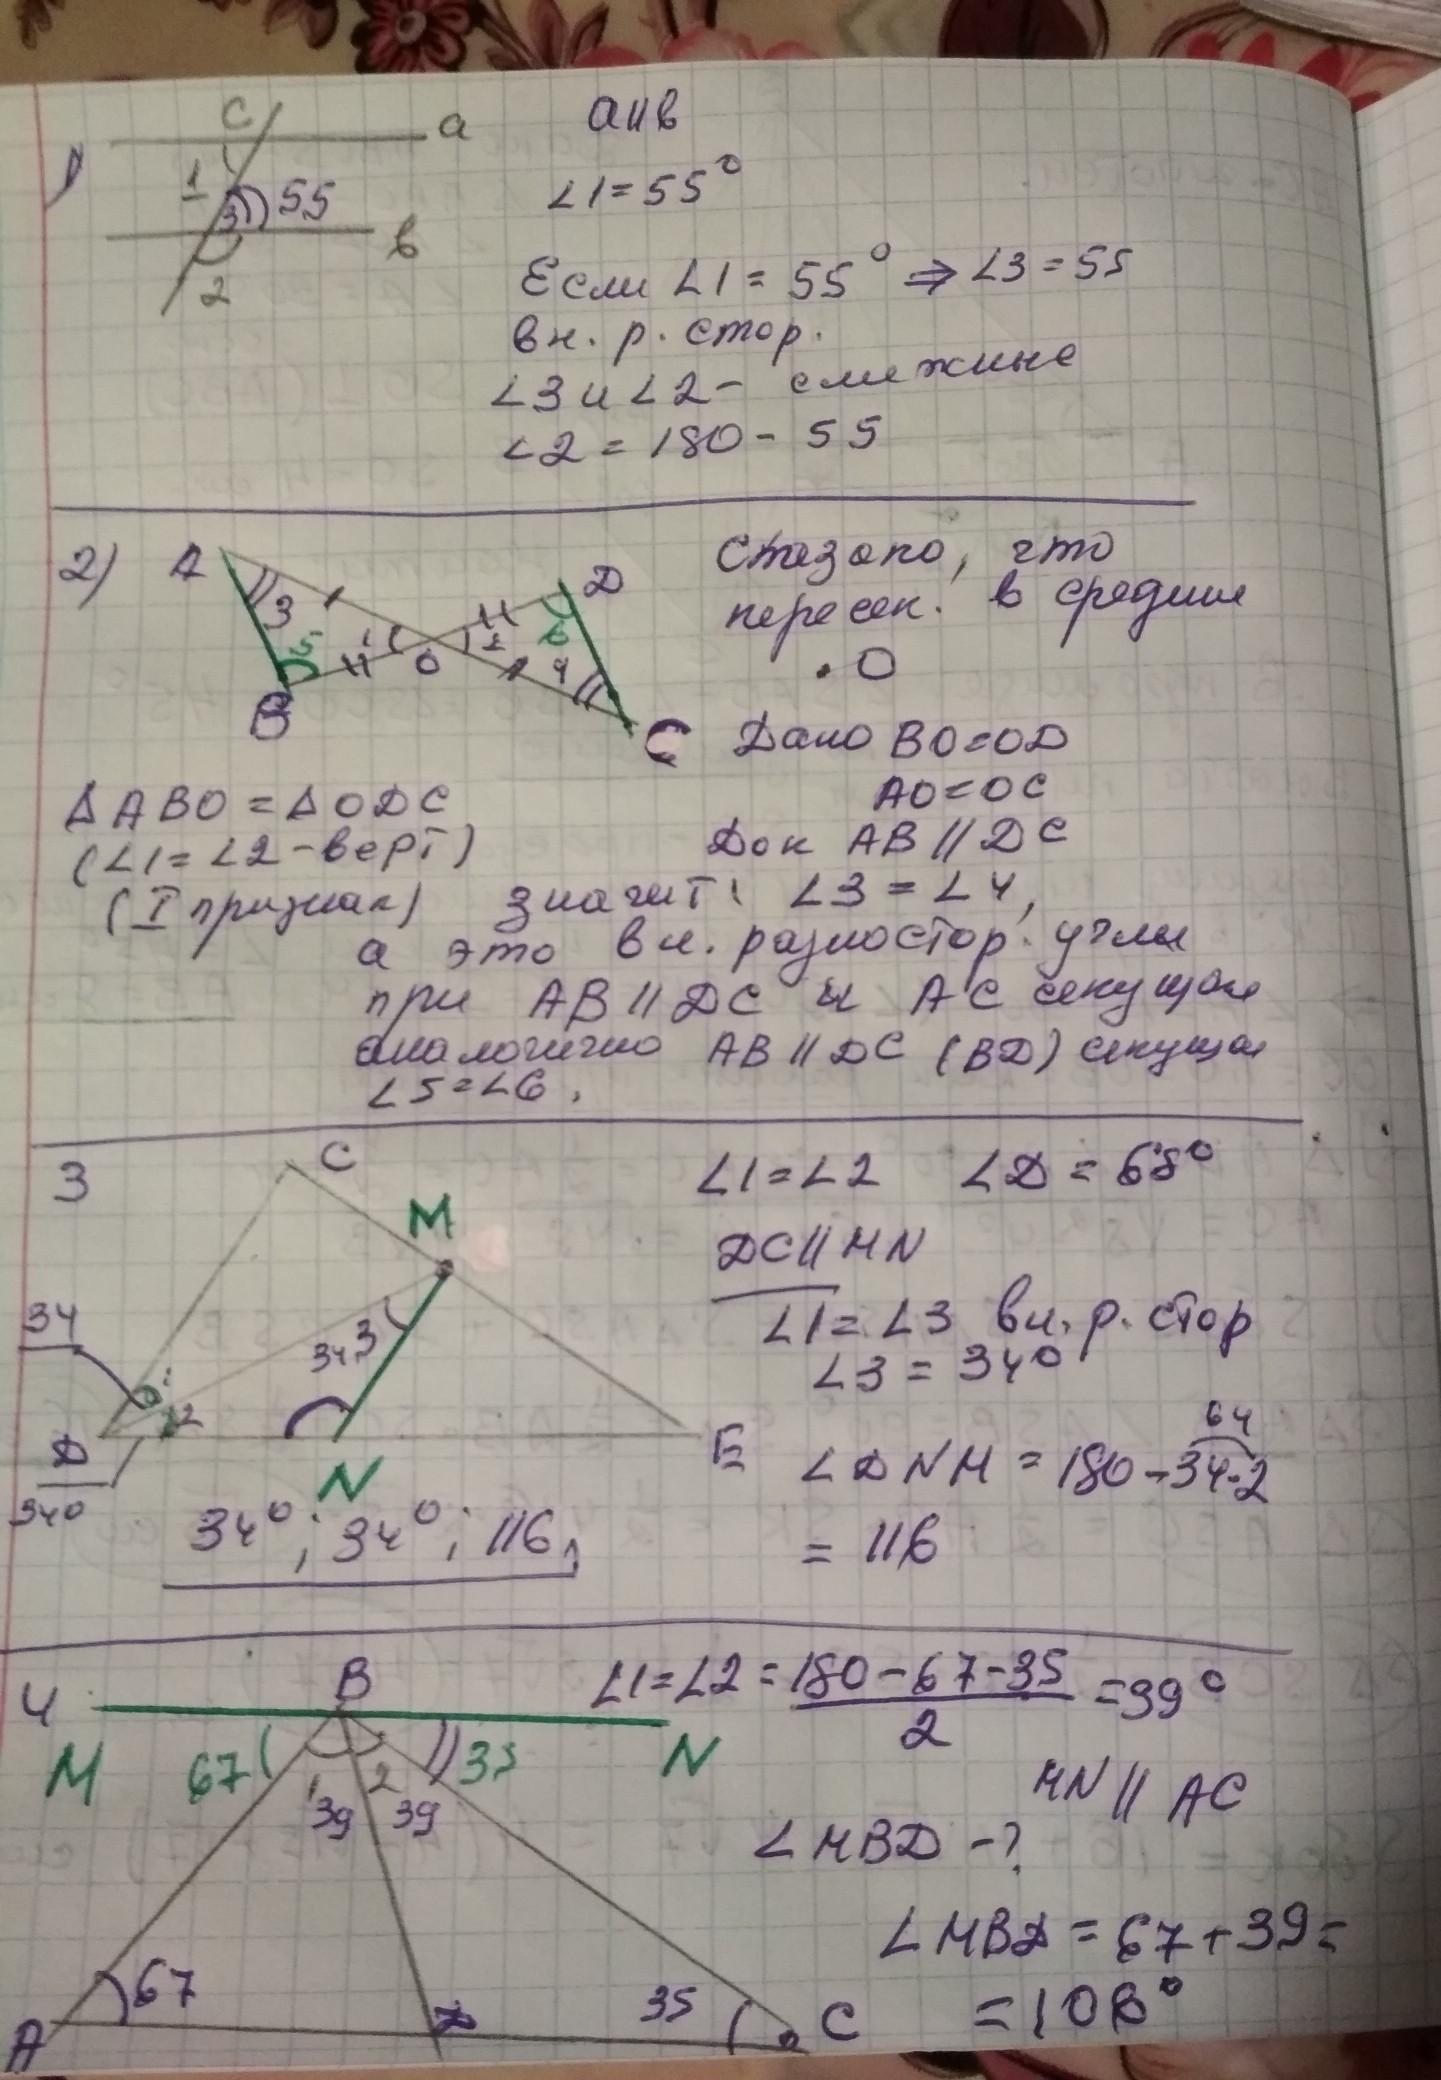 1)
C
a
1
3
55
в
2
a॥в
∠1=55°
Если ∠1= 55° ⇒ ∠3=55
вн. р. стор.
∠3 и ∠2 - смежные
∠2 = 180 - 55
2)
A
D
3
5
1
O
2
6
4
B
C
Сказано, что
пересек. в средине
.O
Дано BO=OD
AO=OC
ΔABO=ΔODC
Док AB // DC
(∠1= ∠2-верт)
(I признак) значит: ∠3 = ∠4,
а это вн. разностор. углы
при AB // DC и AC секущая
аналогично AB // DC (BD) секущая
∠5=∠6.
3
C
M
34
34
3
1
2
D
340
N
E
∠1=∠2 ∠D = 68°
DC//MN
∠1= ∠3 вн. р. стор
∠3 = 34°
64
∠DNM = 180-34·2
= 116
34°; 34°; 116,
4
B
∠1=∠2 = 180-67-35 / 2 =39°
M
67
35
N
1
2
39
39
MN // AC
∠MBD -?
∠MBD = 67+39=
=106°
A
67
D
35
C